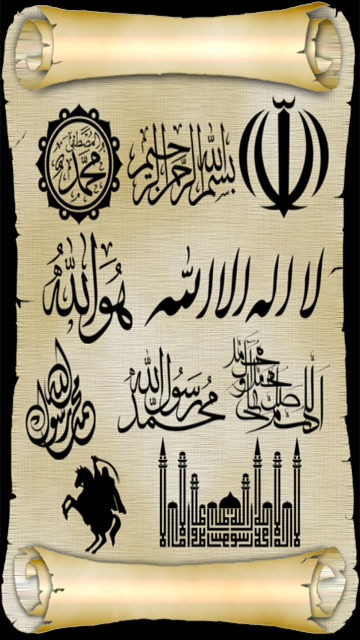 الله
بسم الله الرحمن الرحيم
محمد المصطفى
لا اله الا الله
هو الله
اللهم صل على محمد وآل محمد
محمد رسول الله
محمد رسول الله
لا اله الا الله محمد رسول الله